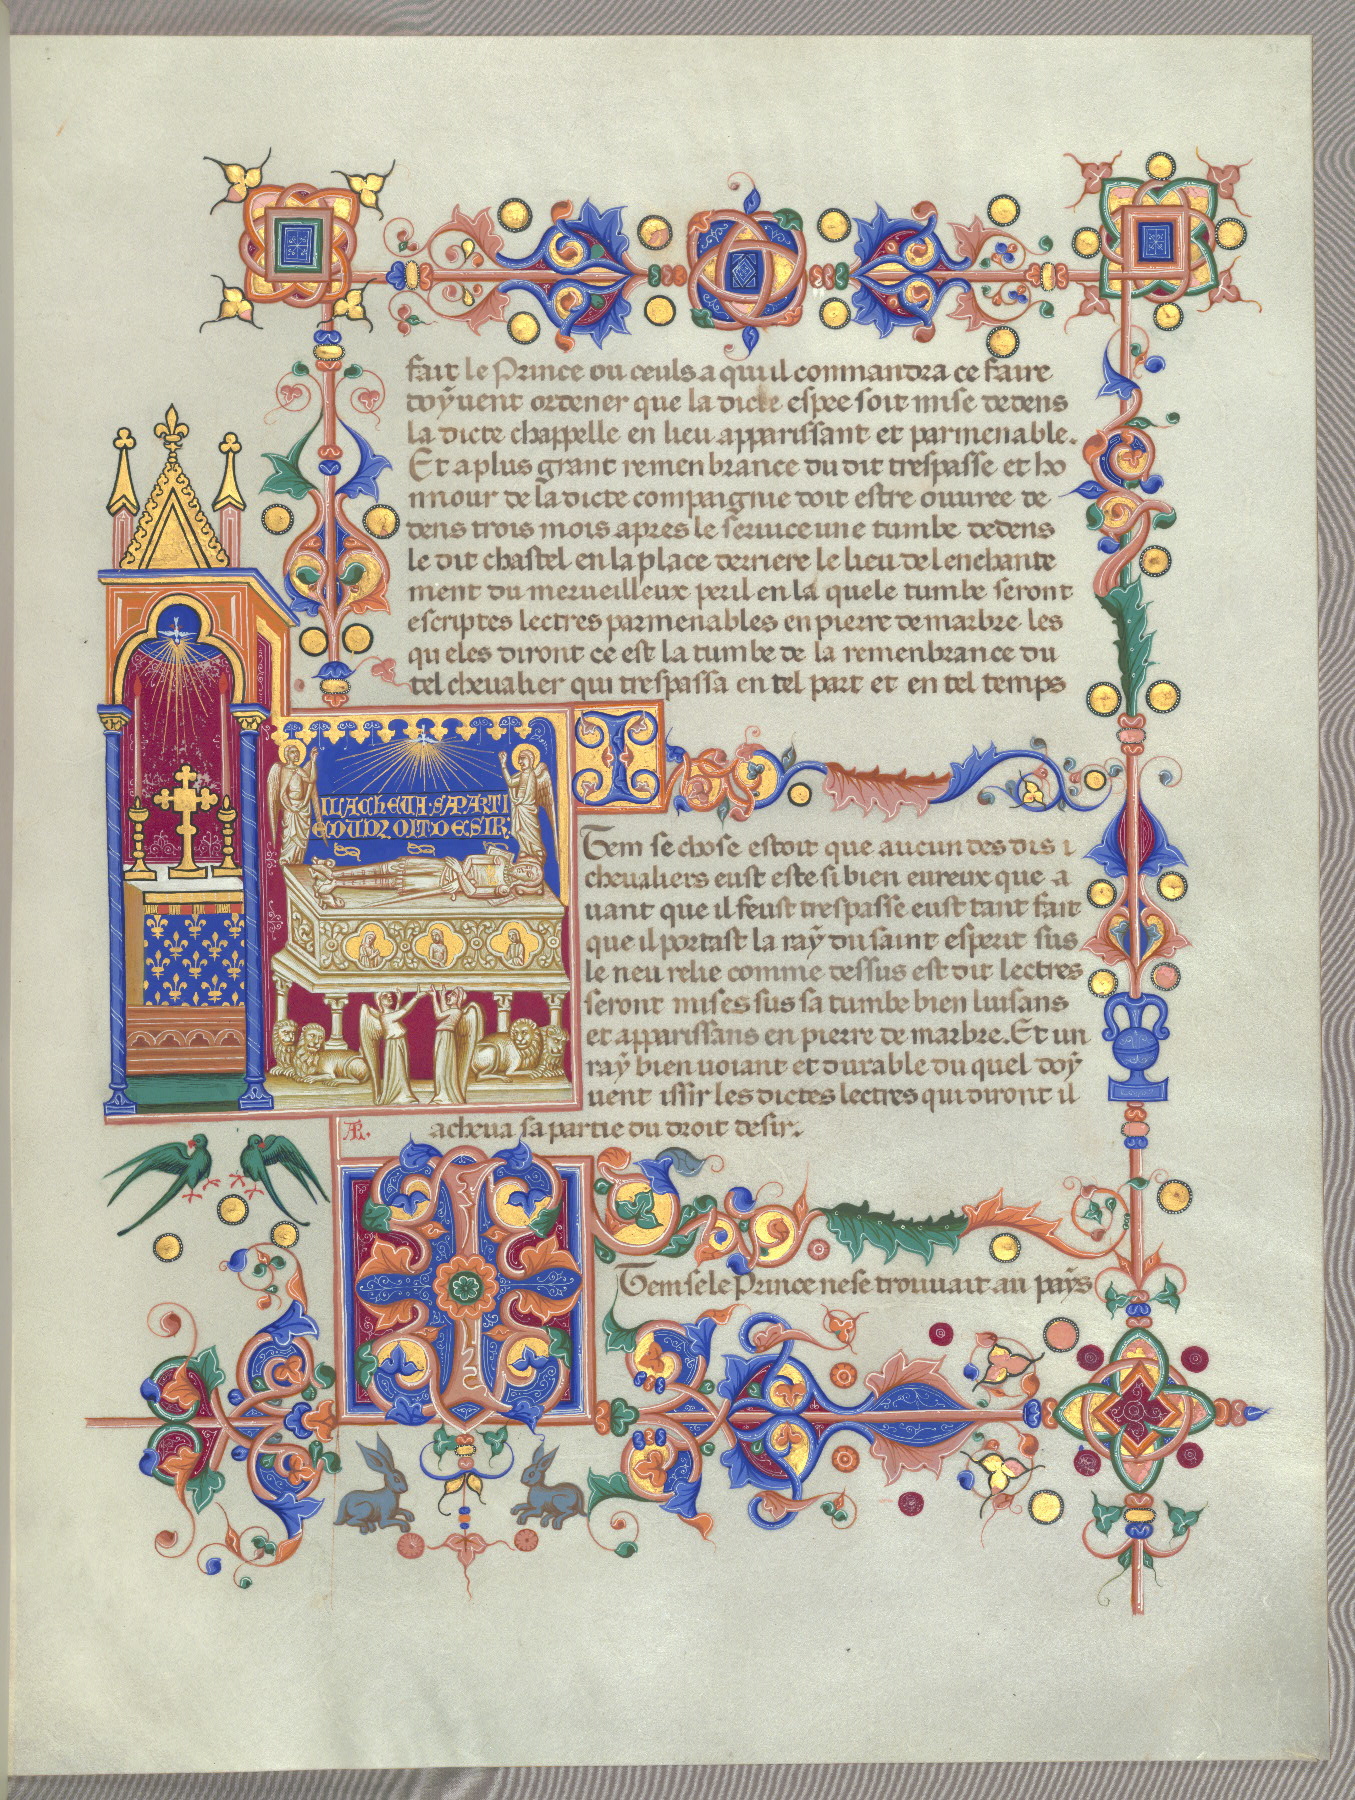 fait le Prince ou ceuls a qui il commandra ce faire
doÿuent ordener que la dicte espee soit mise dedens
la dicte chappelle en lieu apparissant et parmenable.
Et a plus grant remenbrance du dit trespasse et ho
nnour de la dicte compaignie doit estre ouuree de
dens trois mois apres le seruice une tumbe dedens
le dit chastel en la place derriere le lieu de lenchante
ment du merueilleux peril en la quele tumbe seront
escriptes lectres parmenables en pierre de marbre les
queles diront ce est la tumbe de la remenbrance du
tel cheualier qui trespassa en tel part et en tel temps
IL ACHEUA SA PARTI
E DOU DROIT DESIR
I
Tem se chose estoit que aucun des dis i
cheualiers eust este si bien eureux que a
uant que il feust trespasse eust tant fait
que il portast la raÿ du saint esperit sus
le neu relie comme dessus est dit lectres
seront mises sus sa tumbe bien luisans
et apparissans en pierre de marbre. Et un
raÿ bien uoiant et durable du quel doÿ
uent issir les dictes lectres qui diront il
acheua sa partie du droit desir.
I
Tem se le Prince ne se trouuait au païs